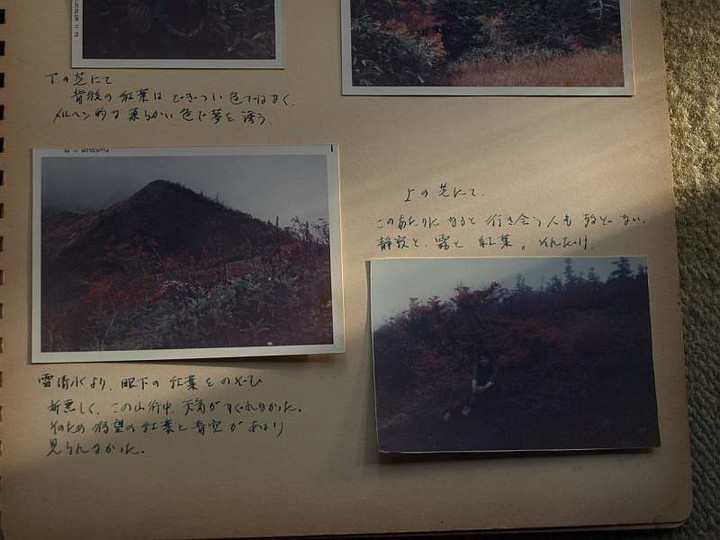 下の芝にて
背後の紅葉は どぎつい色ではなく、
メルヘン的な柔らかい色で夢を誘う。
上の芝にて、
このあたりになると行き会う人も殆どない。
静寂と、霧と 紅葉。それだけ。
雪清水より、眼下の紅葉をのぞむ
折悪しく、この山行中、天気がすぐれなかった。
そのため 待望の紅葉と青空があまり
見られなかった。